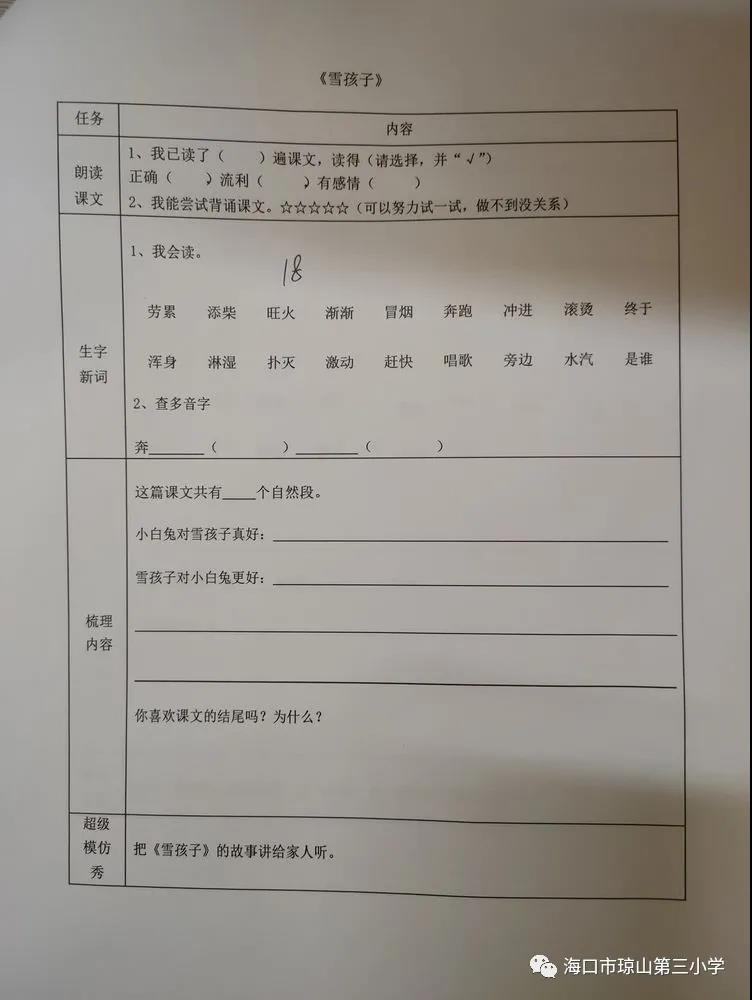 《雪孩子》
任务 内容
朗读课文
1、我已读了（ ）遍课文，读得（请选择，并“√”）
正确（ ），流利（ ），有感情（ ）
2、我能尝试背诵课文。☆☆☆☆☆（可以努力试一试，做不到没关系）
生字新词
1、我会读。
18
劳累 添柴 旺火 渐渐 冒烟 奔跑 冲进 滚烫 终于
浑身 淋湿 扑灭 激动 赶快 唱歌 旁边 水汽 是谁
2、查多音字
奔______（ ）______（ ）
梳理内容
这篇课文共有____个自然段。
小白兔对雪孩子真好：
雪孩子对小白兔更好：
你喜欢课文的结尾吗？为什么？
超级模仿秀
把《雪孩子》的故事讲给家人听。
海口市琼山第三小学